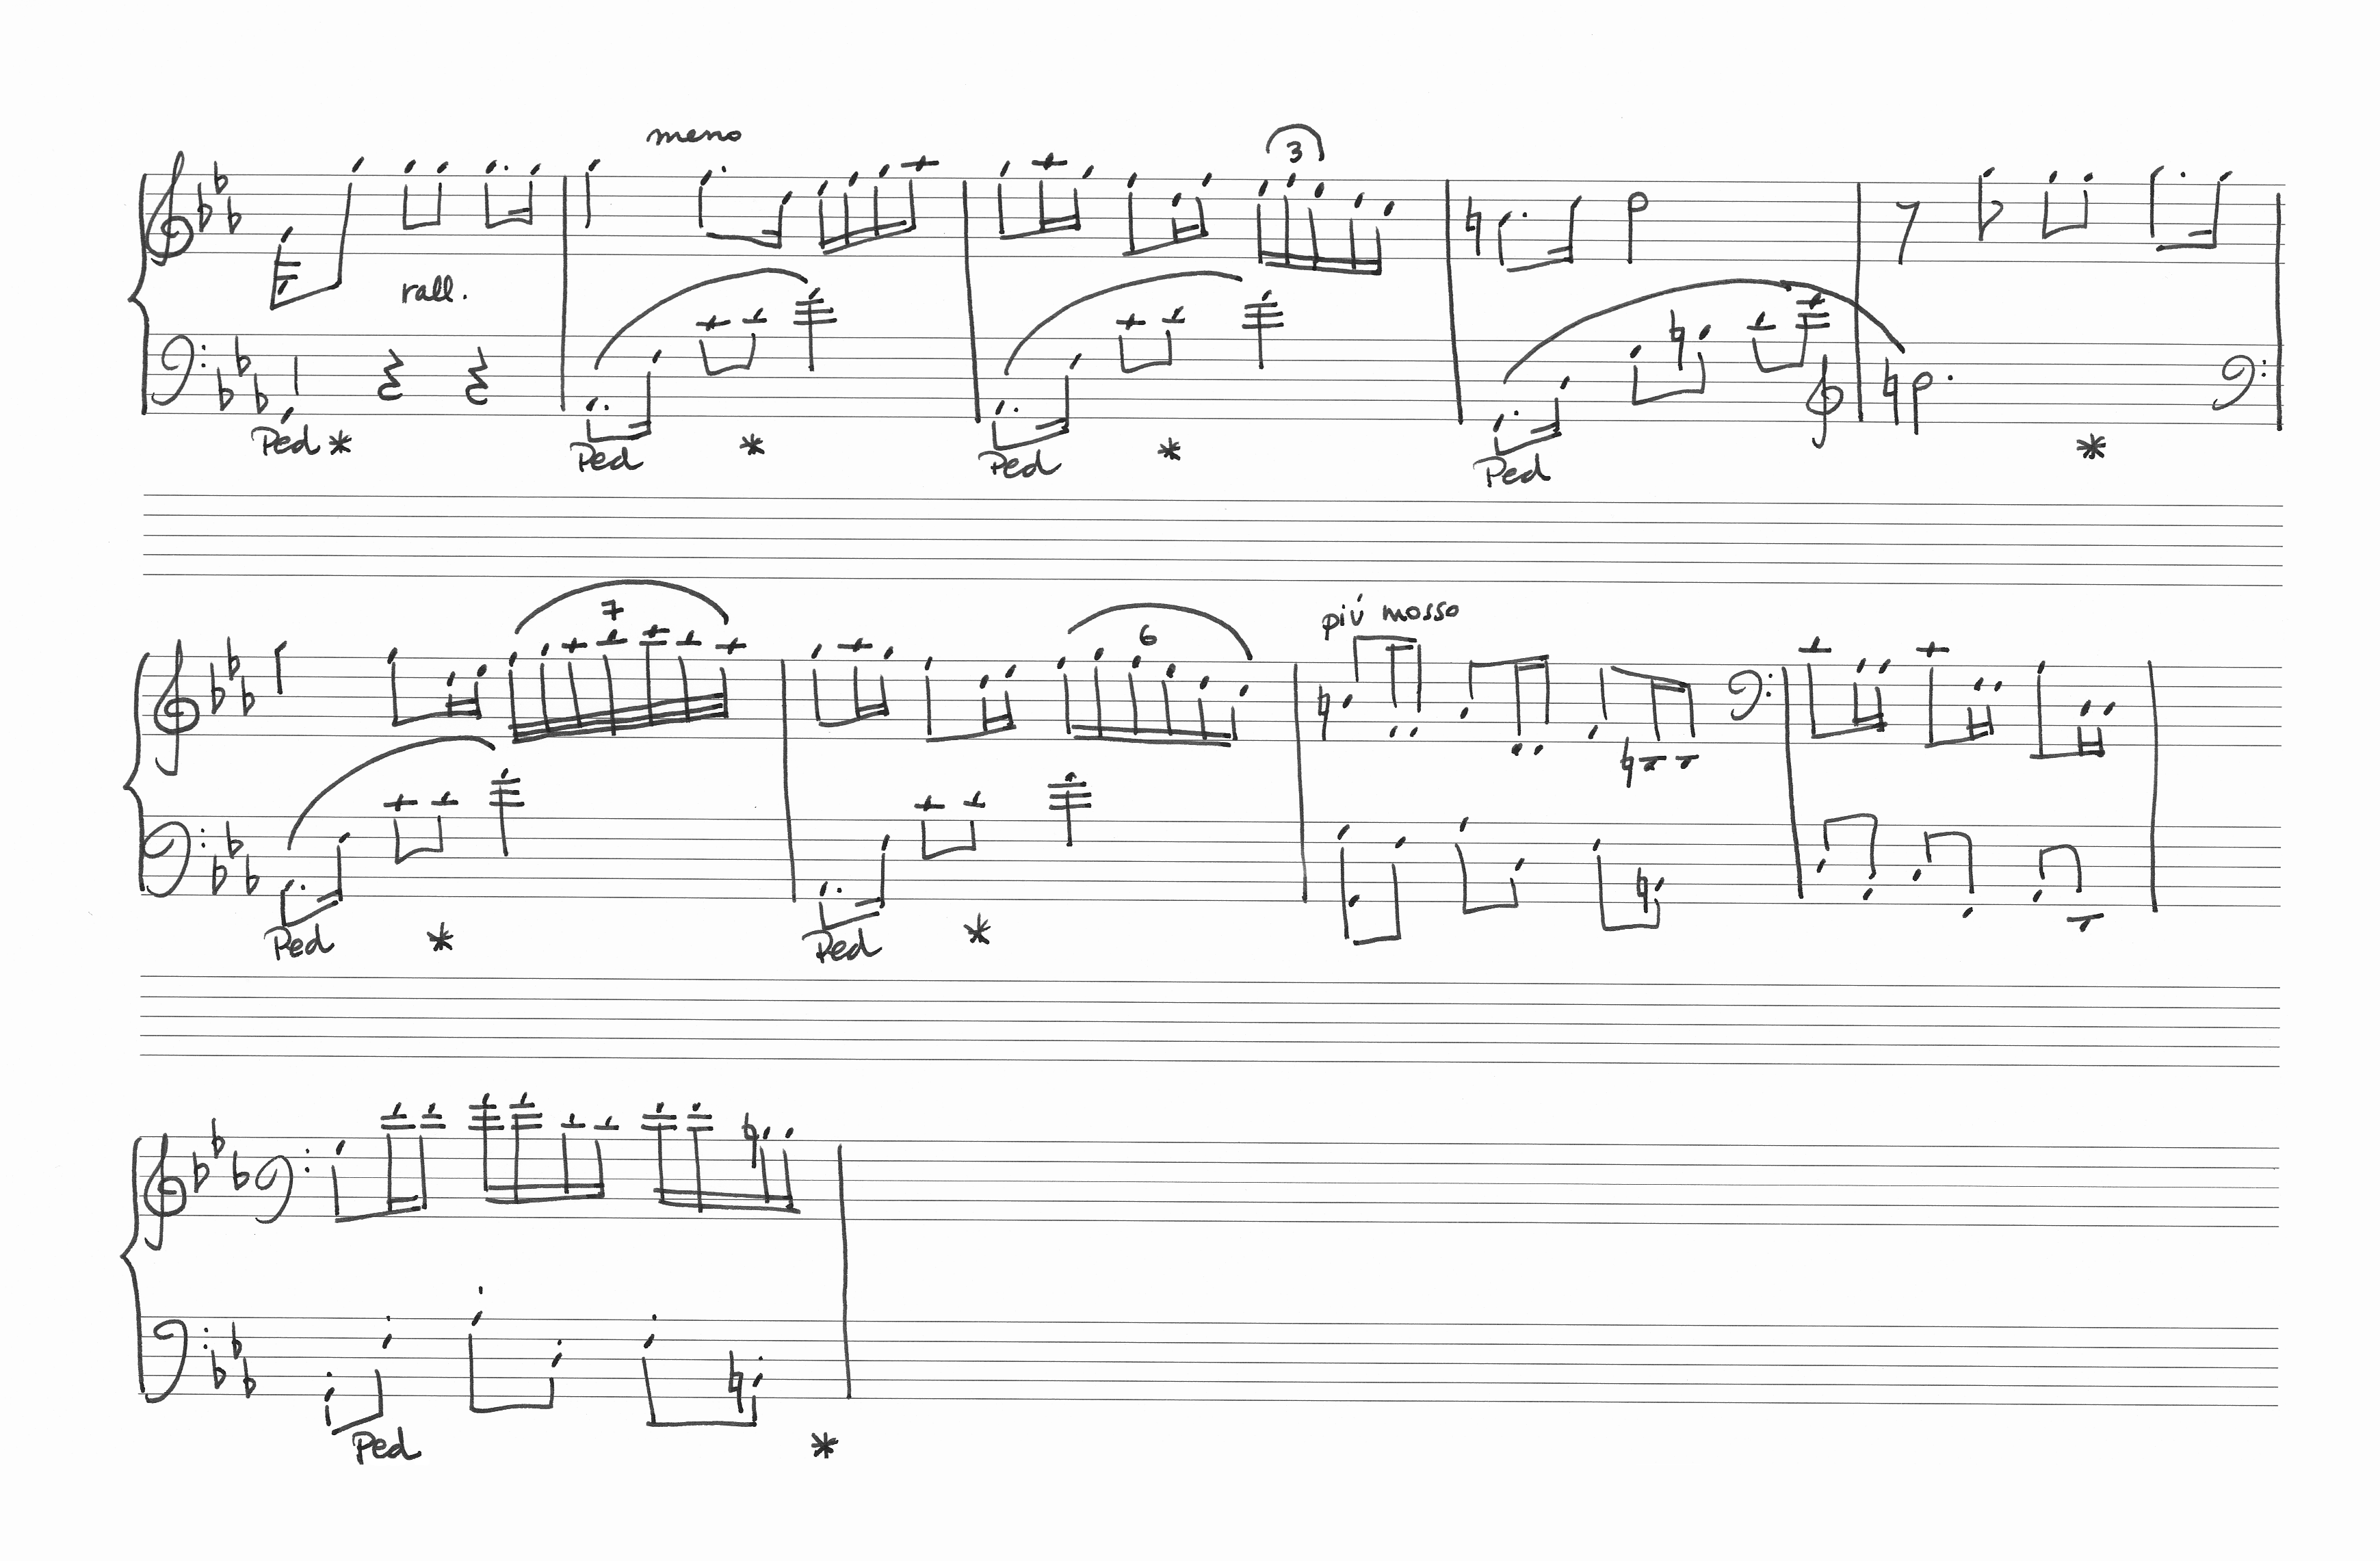 meno
3
rall.
Ped * Ped * Ped * Ped *
7 6 più mosso
Ped * Ped *
Ped *